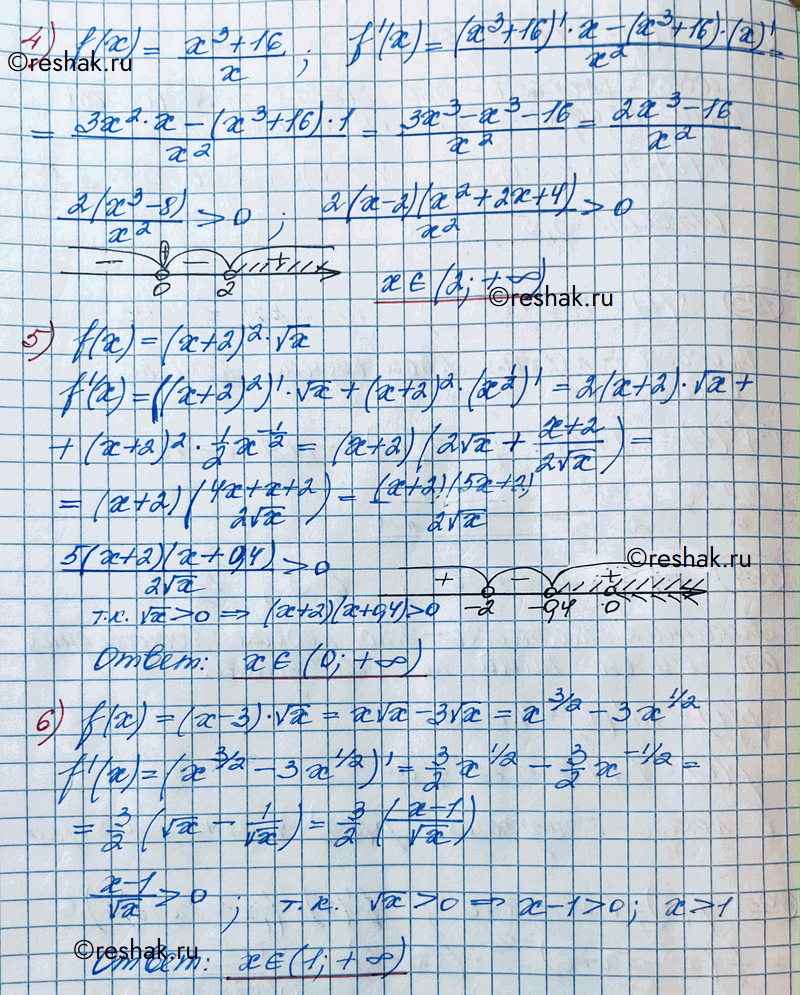 4) f(x) = (x³+16)/x ; f'(x) = ((x³+16)'·x − (x³+16)·(x)')/x² =
©reshak.ru
= (3x²·x − (x³+16)·1)/x² = (3x³−x³−16)/x² = (2x³−16)/x²
2(x³−8)/x² > 0 ; 2(x−2)(x²+2x+4)/x² > 0
− − +
0 2
x ∈ (2; +∞)
©reshak.ru
5) f(x) = (x+2)²·√x
f'(x) = ((x+2)²)'·√x + (x+2)²·(x^(1/2))' = 2(x+2)·√x +
+ (x+2)²·1/2 x^(−1/2) = (x+2)(2√x + (x+2)/(2√x)) =
= (x+2)((4x+x+2)/(2√x)) = (x+2)(5x+2)/(2√x)
©reshak.ru
5(x+2)(x+0,4)/(2√x) > 0
+ − +
−2 −0,4 0
т.к. √x > 0 ⇒ (x+2)(x+0,4) > 0
Ответ: x ∈ (0; +∞)
6) f(x) = (x−3)·√x = x√x − 3√x = x^(3/2) − 3x^(1/2)
f'(x) = (x^(3/2) − 3x^(1/2))' = 3/2 x^(1/2) − 3/2 x^(−1/2) =
= 3/2 (√x − 1/√x) = 3/2 ((x−1)/√x)
(x−1)/√x > 0 ; т.к. √x > 0 ⇒ x−1 > 0; x > 1
©reshak.ru
Ответ: x ∈ (1; +∞)